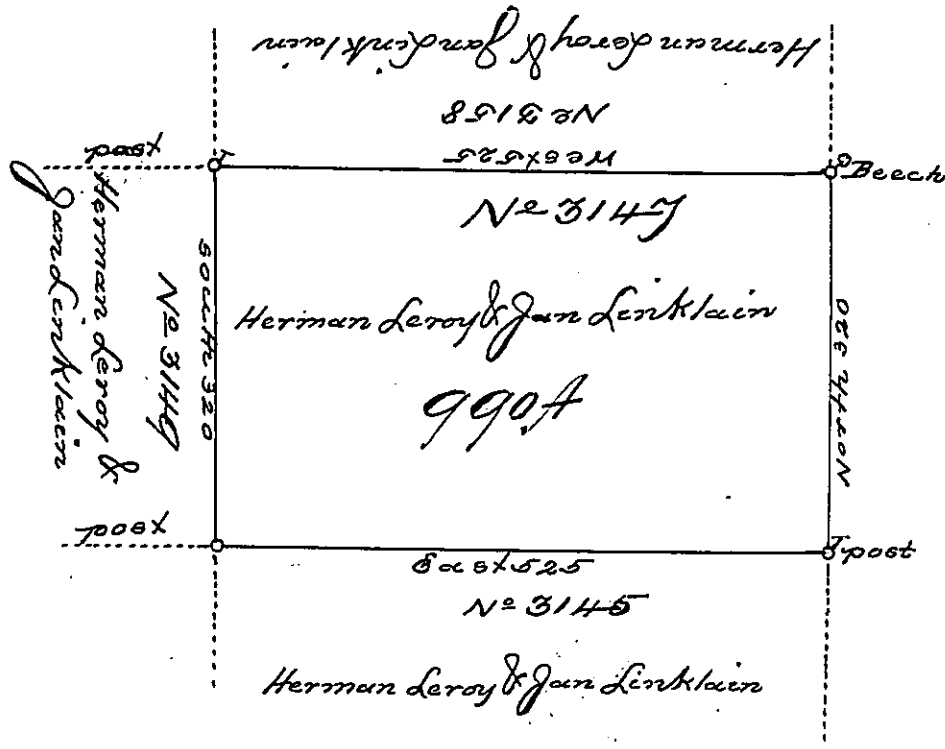 Herman Leroy & Jan Linklain
No 3158
West 525
post
Beech
No 3147
Herman Leroy & Jan Linklain
990 A
South 320
No 3149
Herman Leroy &
Jan Linklain
North 320
post
post
East 525
No 3145
Herman Leroy & Jan Linklain